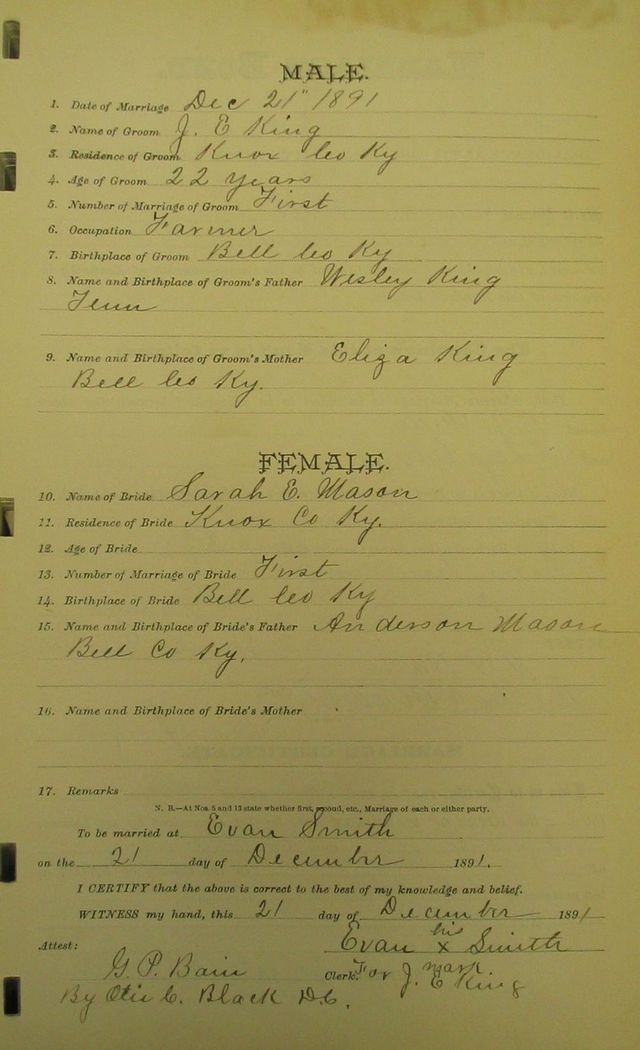 MALE.
1. Date of Marriage Dec 21" 1891
2. Name of Groom J. E King
3. Residence of Groom Knox Co Ky
4. Age of Groom 22 years
5. Number of Marriage of Groom First
6. Occupation Farmer
7. Birthplace of Groom Bell Co Ky
8. Name and Birthplace of Groom's Father Wesley King
Tenn
9. Name and Birthplace of Groom's Mother Eliza King
Bell Co Ky.
FEMALE.
10. Name of Bride Sarah E. Mason
11. Residence of Bride Knox Co Ky.
12. Age of Bride
13. Number of Marriage of Bride First
14. Birthplace of Bride Bell Co Ky
15. Name and Birthplace of Bride's Father Anderson Mason
Bell Co Ky.
16. Name and Birthplace of Bride's Mother
17. Remarks
N. B.—At Nos. 5 and 13 state whether first, second, etc., Marriage of each or either party.
To be married at Evan Smith
on the 21 day of December 1891.
I CERTIFY that the above is correct to the best of my knowledge and belief.
WITNESS my hand, this 21 day of December 1891
his
Attest: Evan x Smith
mark
G. P. Bain Clerk. For J. E King
By Otis C. Black D.C.